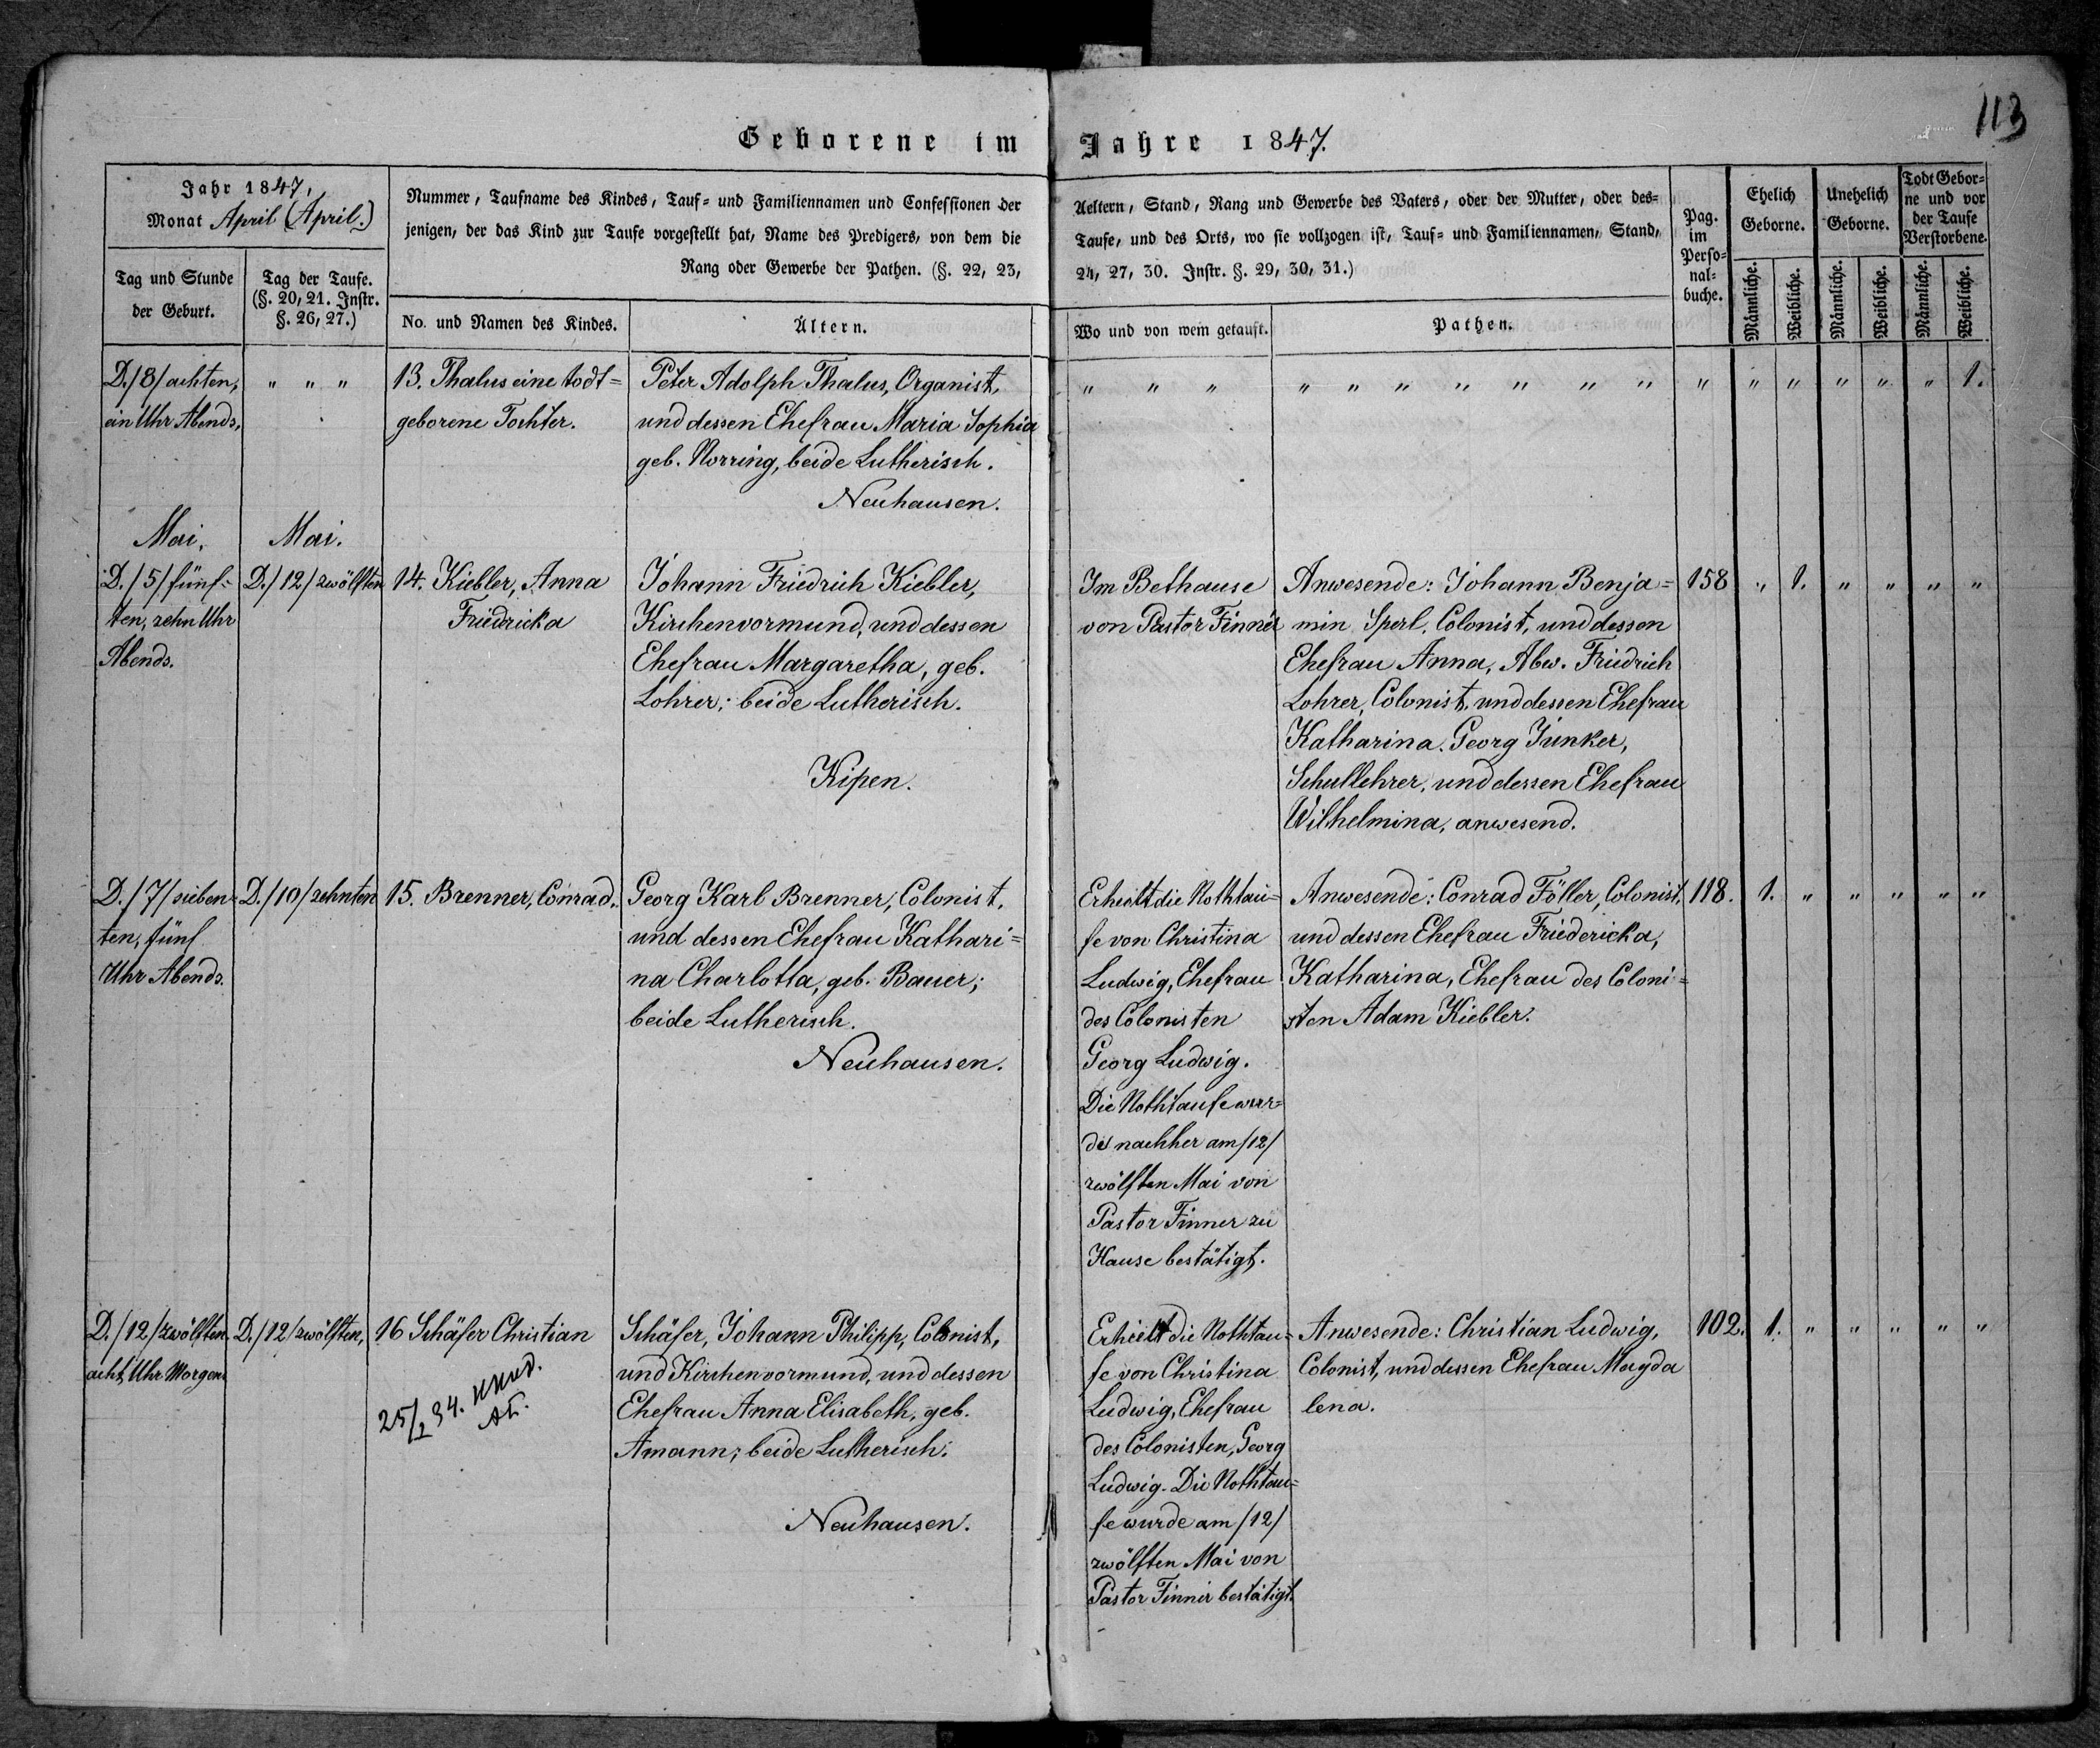 113
Geborene im Jahre 1847.
Jahr 1847,
Monat April (April.)
Tag und Stunde
der Geburt.
Tag der Taufe.
(§. 20, 21. Instr.
§. 26, 27.)
Nummer, Taufname des Kindes, Tauf- und Familiennamen und Confessionen der
jenigen, der das Kind zur Taufe vorgestellt hat, Name des Predigers, von dem die
Rang oder Gewerbe der Pathen. (§. 22, 23,
No. und Namen des Kindes.
Ältern.
Aeltern, Stand, Rang und Gewerbe des Vaters, oder der Mutter, oder des=
Taufe, und des Orts, wo sie vollzogen ist, Tauf- und Familiennamen, Stand,
24, 27, 30. Instr. §. 29, 30, 31.)
Wo und von wem getauft.
Pathen.
Pag.
im
Perso=
nal=
buche.
Ehelich
Geborne.
Unehelich
Geborne.
Todt Gebor=
ne und vor
der Taufe
Verstorbene.
Männliche.
Weibliche.
Männliche.
Weibliche.
Männliche.
Weibliche.
D./8/achten,
ein Uhr Abends,
" " "
13. Thalus eine todt=
geborene Tochter.
Peter Adolph Thalus, Organist,
und dessen Ehefrau Maria Sophia
geb. Norring, beide Lutherisch.
Neuhausen.
" " "
" " " " " " "
" " " " " " 1.
Mai.
Mai.
D./5/fünf=
ten, zehn Uhr
Abends.
D./12/zwölften
14. Kiebler, Anna
Friedricka
Johann Friedrich Kiebler,
Kirchenvormund, und dessen
Ehefrau Margaretha, geb.
Lohrer; beide Lutherisch.
Kipen.
Im Bethause
von Pastor Finner
Anwesende: Johann Benja=
min Sperl, Colonist, und dessen
Ehefrau Anna, Abw. Friedrich
Lohrer, Colonist, und dessen Ehefrau
Katharina. Georg Junker,
Schullehrer, und dessen Ehefrau
Wilhelmina, anwesend.
158 " 1. " " " "
D./7/sieben=
ten, fünf
Uhr Abends.
D./10/zehnten
15. Brenner, Conrad.
Georg Karl Brenner, Colonist,
und dessen Ehefrau Kathari=
na Charlotta, geb. Bauer;
beide Lutherisch.
Neuhausen.
Erhielt die Nothtau=
fe von Christina
Ludwig, Ehefrau
des Colonisten
Georg Ludwig.
Die Nothtaufe wur=
de nachher am /12/
zwölften Mai von
Pastor Finner zu
Hause bestätigt.
Anwesende: Conrad Föller, Colonist,
und dessen Ehefrau Friedericka,
Katharina, Ehefrau des Coloni=
sten Adam Kiebler.
118. 1. " " " " "
D./12/zwölften,
acht Uhr Morgens
D./12/zwölften,
16 Schäfer Christian
25/I 34.
Schäfer, Johann Philipp, Colonist,
und Kirchenvormund, und dessen
Ehefrau Anna Elisabeth, geb.
Amann; beide Lutherisch.
Neuhausen.
Erhielt die Nothtau=
fe von Christina
Ludwig, Ehefrau
des Colonisten, Georg
Ludwig. Die Nothtau=
fe wurde am /12/
zwölften Mai von
Pastor Finner bestätigt.
Anwesende: Christian Ludwig,
Colonist, und dessen Ehefrau Magda
lena.
102. 1. " " " " "